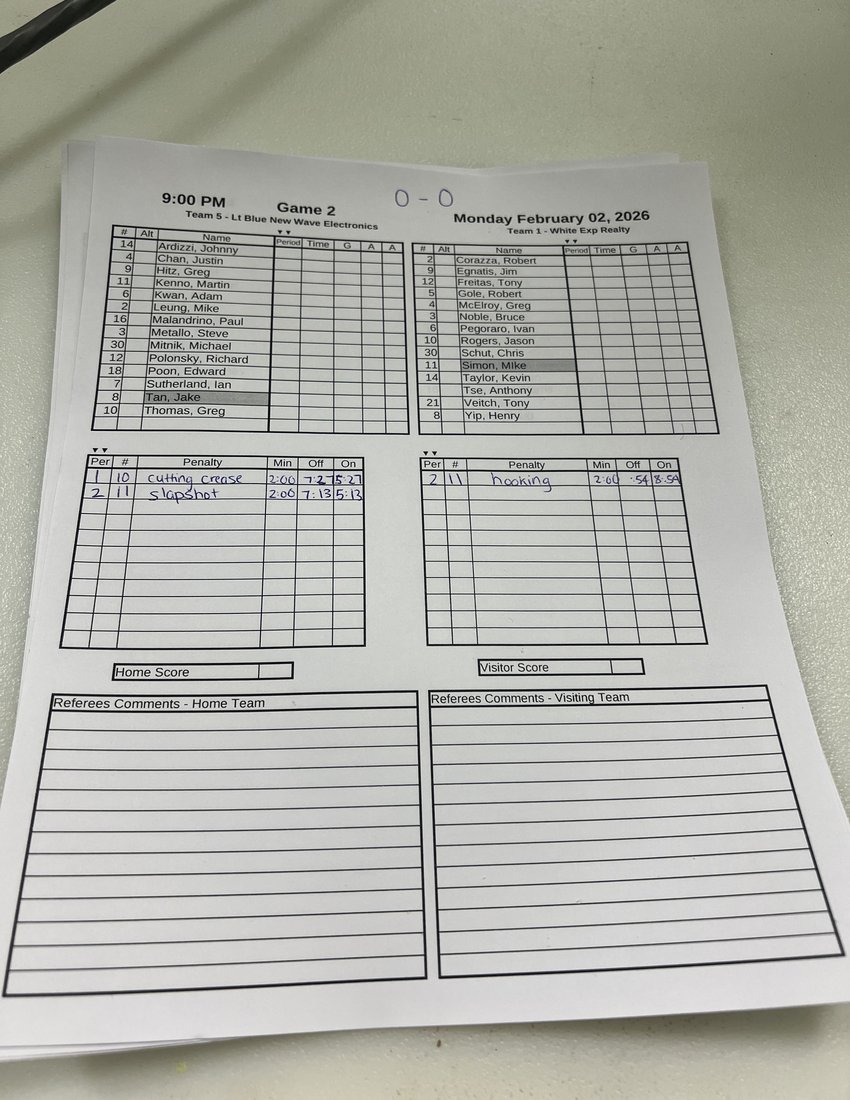 0 - 0
9:00 PM Game 2
Team 5 - Lt Blue New Wave Electronics
Monday February 02, 2026
Team 1 - White Exp Realty
# Alt Name Period Time G A A
14 Ardizzi, Johnny
4 Chan, Justin
9 Hitz, Greg
11 Kenno, Martin
6 Kwan, Adam
2 Leung, Mike
16 Malandrino, Paul
3 Metallo, Steve
30 Mitnik, Michael
12 Polonsky, Richard
18 Poon, Edward
7 Sutherland, Ian
8 Tan, Jake
10 Thomas, Greg
# Alt Name Period Time G A A
2 Corazza, Robert
9 Egnatis, Jim
12 Freitas, Tony
5 Gole, Robert
4 McElroy, Greg
3 Noble, Bruce
6 Pegoraro, Ivan
10 Rogers, Jason
30 Schut, Chris
11 Simon, MIke
14 Taylor, Kevin
Tse, Anthony
21 Veitch, Tony
8 Yip, Henry
Per # Penalty Min Off On
1 10 cutting crease 2:00 7:27 5:27
2 11 slapshot 2:00 7:13 5:13
Per # Penalty Min Off On
2 11 hooking 2:00 :54 8:54
Home Score
Visitor Score
Referees Comments - Home Team
Referees Comments - Visiting Team